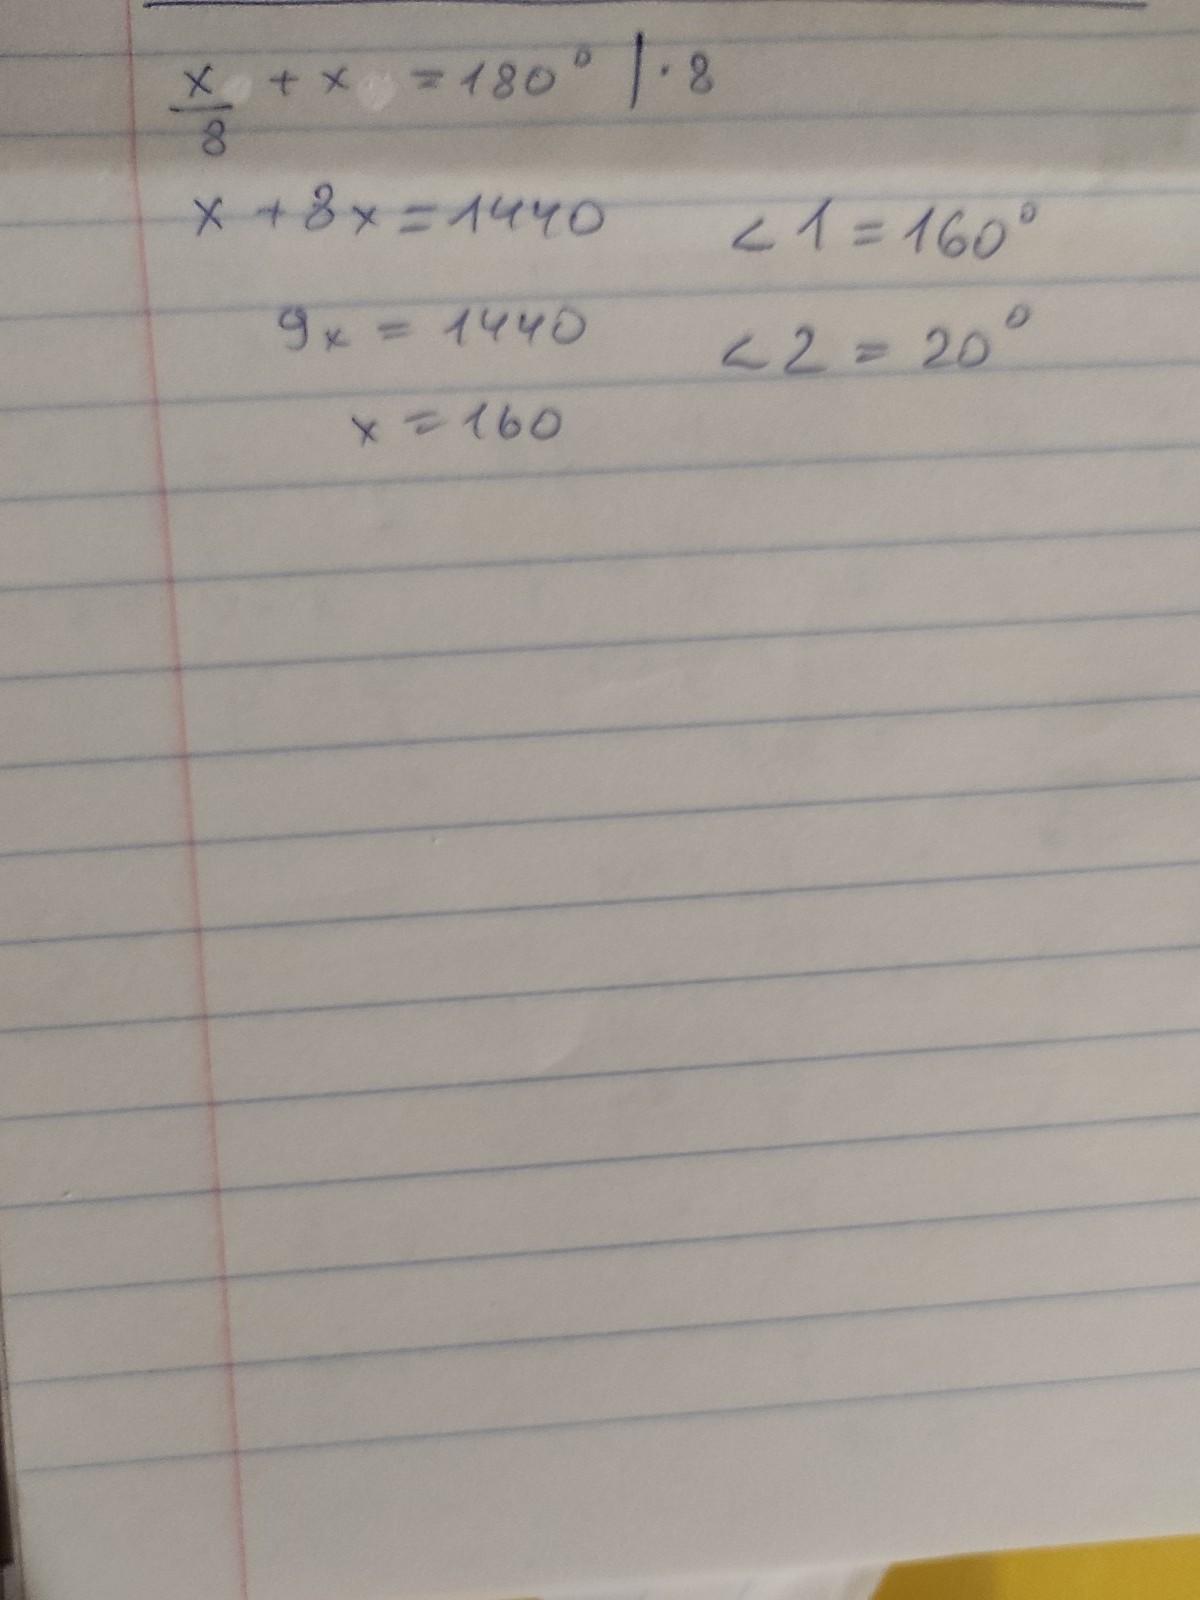 x/8 + x = 180° | · 8
x + 8x = 1440
9x = 1440
x = 160
< 1 = 160°
< 2 = 20°